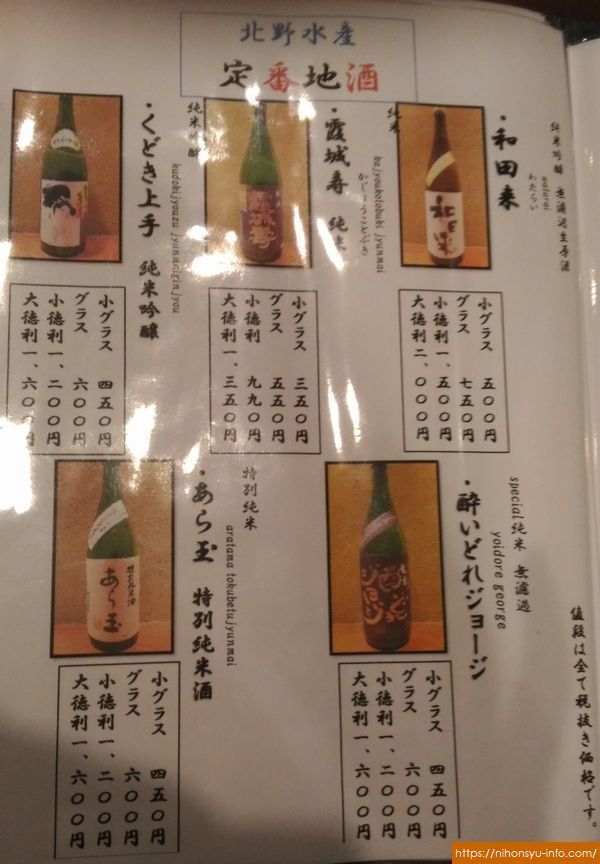 北野水産
定番地酒
純米吟醸 無濾過生原酒
わたらい
・和田来
小グラス 五〇〇円
グラス 七五〇円
小徳利 一、五〇〇円
大徳利 二、〇〇〇円
純米
kajyoukotobuki jyunmai
かじょうことぶき
・霞城寿 純米
小グラス 三五〇円
グラス 五五〇円
小徳利 九九〇円
大徳利 一、三五〇円
純米吟醸
kudokijyouzu jyunmaiginjyou
・くどき上手 純米吟醸
小グラス 四五〇円
グラス 六〇〇円
小徳利 一、二〇〇円
大徳利 一、六〇〇円
special純米 無濾過
yoidore george
・酔いどれジョージ
小グラス 四五〇円
グラス 六〇〇円
小徳利 一、二〇〇円
大徳利 一、六〇〇円
特別純米
aratama tokubetujyunmai
・あら玉 特別純米酒
小グラス 四五〇円
グラス 六〇〇円
小徳利 一、二〇〇円
大徳利 一、六〇〇円
値段は全て税抜き価格です。
和田来
霞城寿
あら玉
酔どれジョージ
https://nihonsyu-info.com/